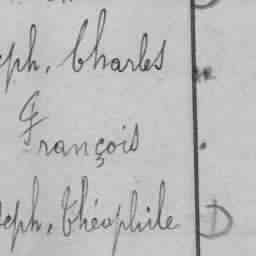 eph, Charles
François
seph, Théophile D